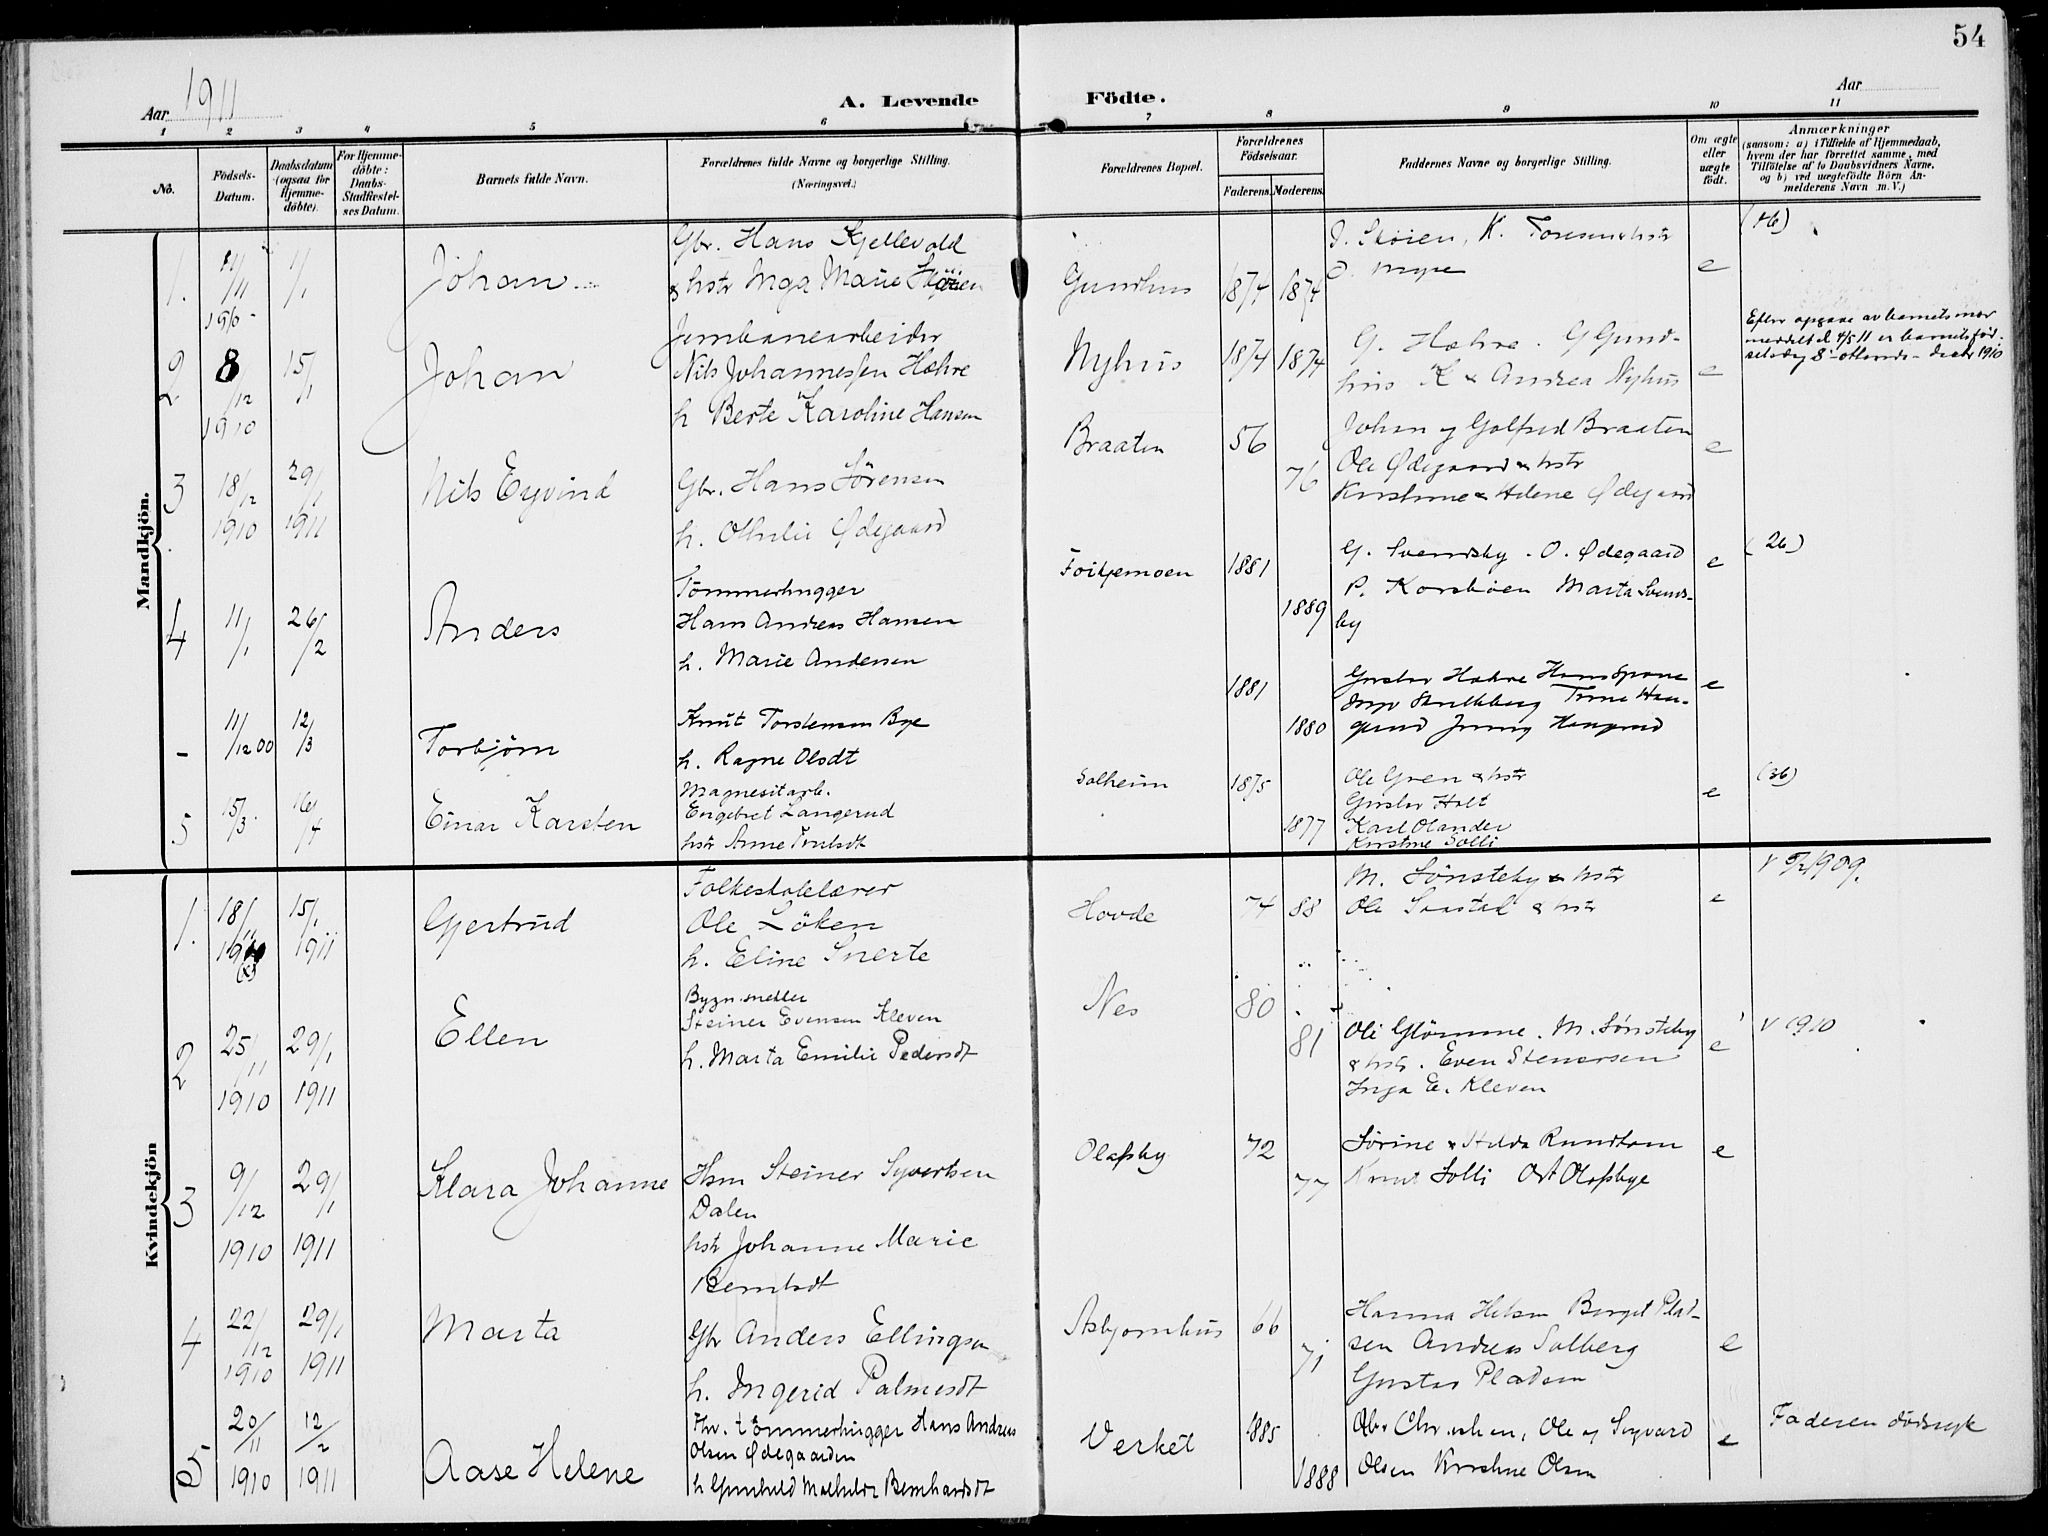 54
Aar 1911
A. Levende Födte.
Aar
1 2 3 4 5 6 7 8 9 10 11
No.
Födsels-Datum.
Daabsdatum (ogsaa for Hjemme-döbte).
For Hjemme-döbte: Daabs-Stadfæstel-ses Datum.
Barnets fulde Navn.
Forældrenes fulde Navne og borgerlige Stilling.
(Næringsvei.)
Forældrenes Bopæl.
Forældrenes Födselsaar.
Faderens. Moderens.
Faddernes Navne og borgerlige Stilling.
Om ægte eller uægte födt.
Anmærkninger
(saasom: a) i Tilfælde af Hjemmedaab,
hvem der har forrettet samme, med
Tilföielse af to Daabsvidners Navne,
og b) ved uægtefödte Börn An-
melderens Navn m. V.)
Mandkjön.
1. 11/11 1910 1/1 Johan
Gbr. Hans Kjellevold
& hstr Inga Marie Skøien
Gundhus 1874 1874
J. Skøien, K.
e
2 8/12 1910 15/1 Johan
Jernbanearbeider
Nils Johannessen Hæhre
h Berte Karoline Hansen
Nyhus 1874 1874
G. Hæhre. G Gund-
hus K & Andrea Nyhus
e
Efter opgave av barnets mor
meddelt d. 4/5 11 er barnets fød-
selsdag 8 - ottende - decbr 1910
3 18/12 1910 29/1 1911 Nils Eyvind
Gbr. Hans Sørensen
h. Othilie Ødegaard
Braaten 56 76
Johan og Golfred Braaten
Ole Ødegaard & hstr
Kristine & Helene Ødegaard
e
4 11/1 26/2 Anders
Tømmerhugger
Hans Andreas Hansen
h. Marie Andersen
Foikjemoen 1881 1889
G. Svendsby. O. Ødegaard
P. Korsbøen Marta Svends-
by
e
(26)
- 11/12 00 12/3 Torbjørn
Knut Torstensen Bye
h. Ragne Olsdt
1881 1880
Gustav Hæhre
e
5 15/3 16/4 Einar Karsten
Magnesitarb.
Engebret Langerud
hstr Anne Trulsdt
Solheim 1875 1877
Ole Gren & hstr
Gustav Holt
Karl Olander
Kirstine Solli
e
(36)
Kvindekjön
1. 18/11 15/1 1911 Gjertrud
Folkeskolelærer
Ole Løken
h. Eline Snerte
Hovde 74 88
M. Sønsteby & hstr
Ole Saastad & hstr
e
2 25/11 1910 29/1 1911 Ellen
Steiner Evensen Kleven
h. Marta Emilie Pedersdt
Nes 80 81
Ole Glømme. M. Sønsteby
& hstr. Even Stenersen
Inga E. Kleven
e
V 1910
3 9/12 1910 29/1 1911 Klara Johanne
Hsm Steiner Syvertsen
Dalen
hstr Johanne Marie
Berntsdt
Olafsby 72 77
Sørine & Hilda Rundtom
Knut Solli Olafsbye
e
4 22/12 1910 29/1 1911 Marta
Gbr Anders Ellingsen
h. Ingerid Palmesdt
Asbjørnhus 66 71
Hanna Helsen Berget Plad-
sen Andreas Solberg
Gustav Pladsen
e
5 20/11 1910 12/2 1911 Aase Helene
Fhv. tømmerhugger Hans Andreas
Olsen Ødegaarden
h Gunhild Mathilde Bernhardsdt
Verket 1885 1888
Ole og Sigvard
Olsen Kristine Olsen
e
Faderen dødssyk